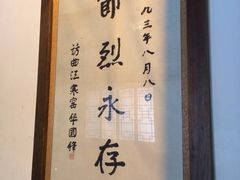 九三年八月八日
節烈永存
访曲江寒窑 华国锋